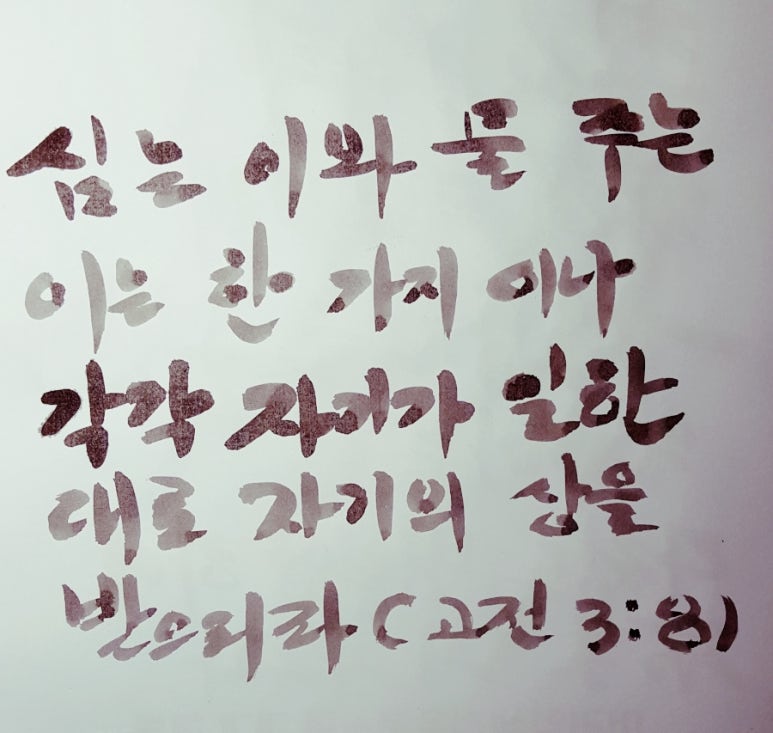 심는 이와 물 주는
이는 한 가지 이나
각각 자기가 일한
대로 자기의 상을
받으리라 (고전 3:8)